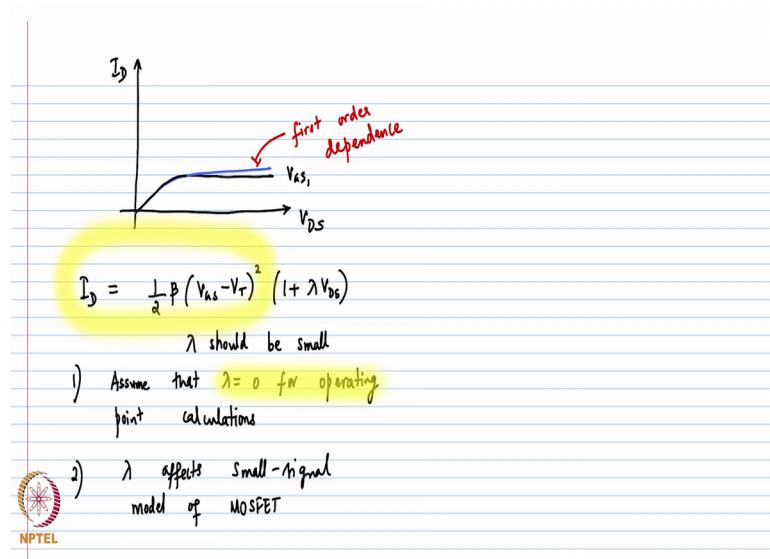 I_D
first order
dependence
V_GS1
V_DS
I_D = 1/2 β (V_GS - V_T)^2 (1 + λ V_DS)
λ should be small
1) Assume that λ = 0 for operating
point calculations
2) λ affects small-signal
model of MOSFET
NPTEL